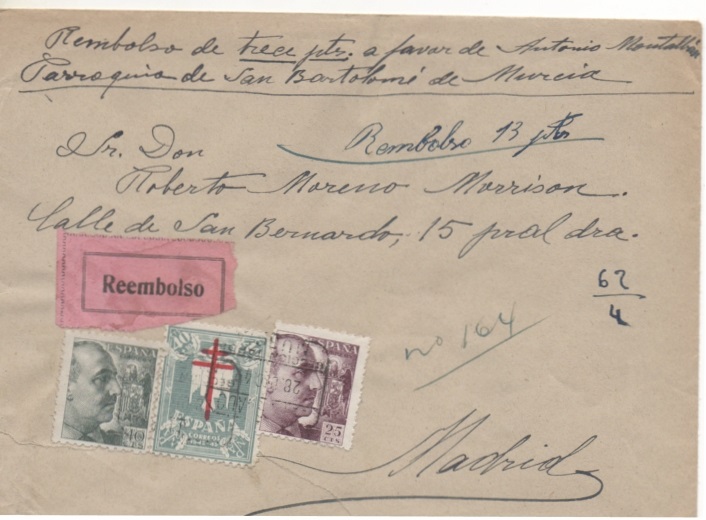 Rembolso de trece ptz. a favor de Antonio Montalbán
Parroquia de San Bartolomé de Murcia
Rembolso 13 pts
Sr. Don
Roberto Moreno Morrison.
Calle de San Bernardo, 15 pral dra.
62
4
Reembolso
nº 164
ESPAÑA
40
ESPAÑA
CORREOS
ESPAÑA
25
CTS
Madrid